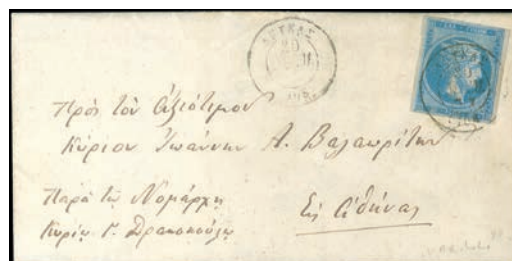 ΛΕΥΚΑΣ
20
Πρὸς τὸν Ἀξιότιμον
Κύριον Ἰωάννην Α. Βαλαωρίτην
Παρὰ τῷ Νομάρχῃ
Κυρίῳ Γ. Δρακοπούλῳ
Εἰς Ἀθήνας